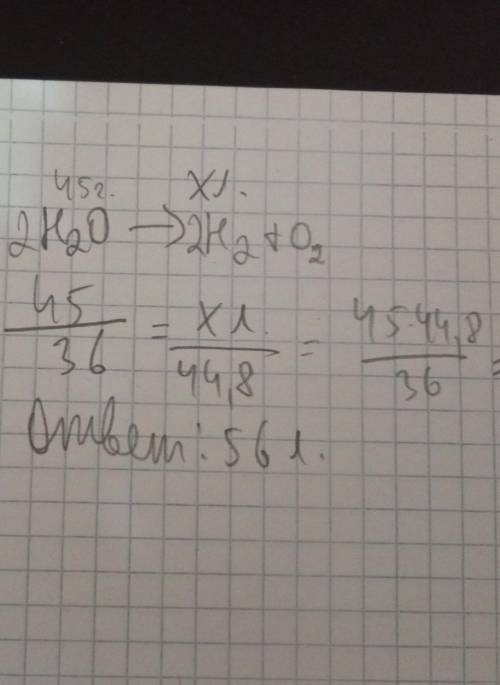 45г. Xл.
2H₂O → 2H₂ + O₂
45/36 = X л./44,8 = 45·44,8/36 =
Ответ: 56 л.